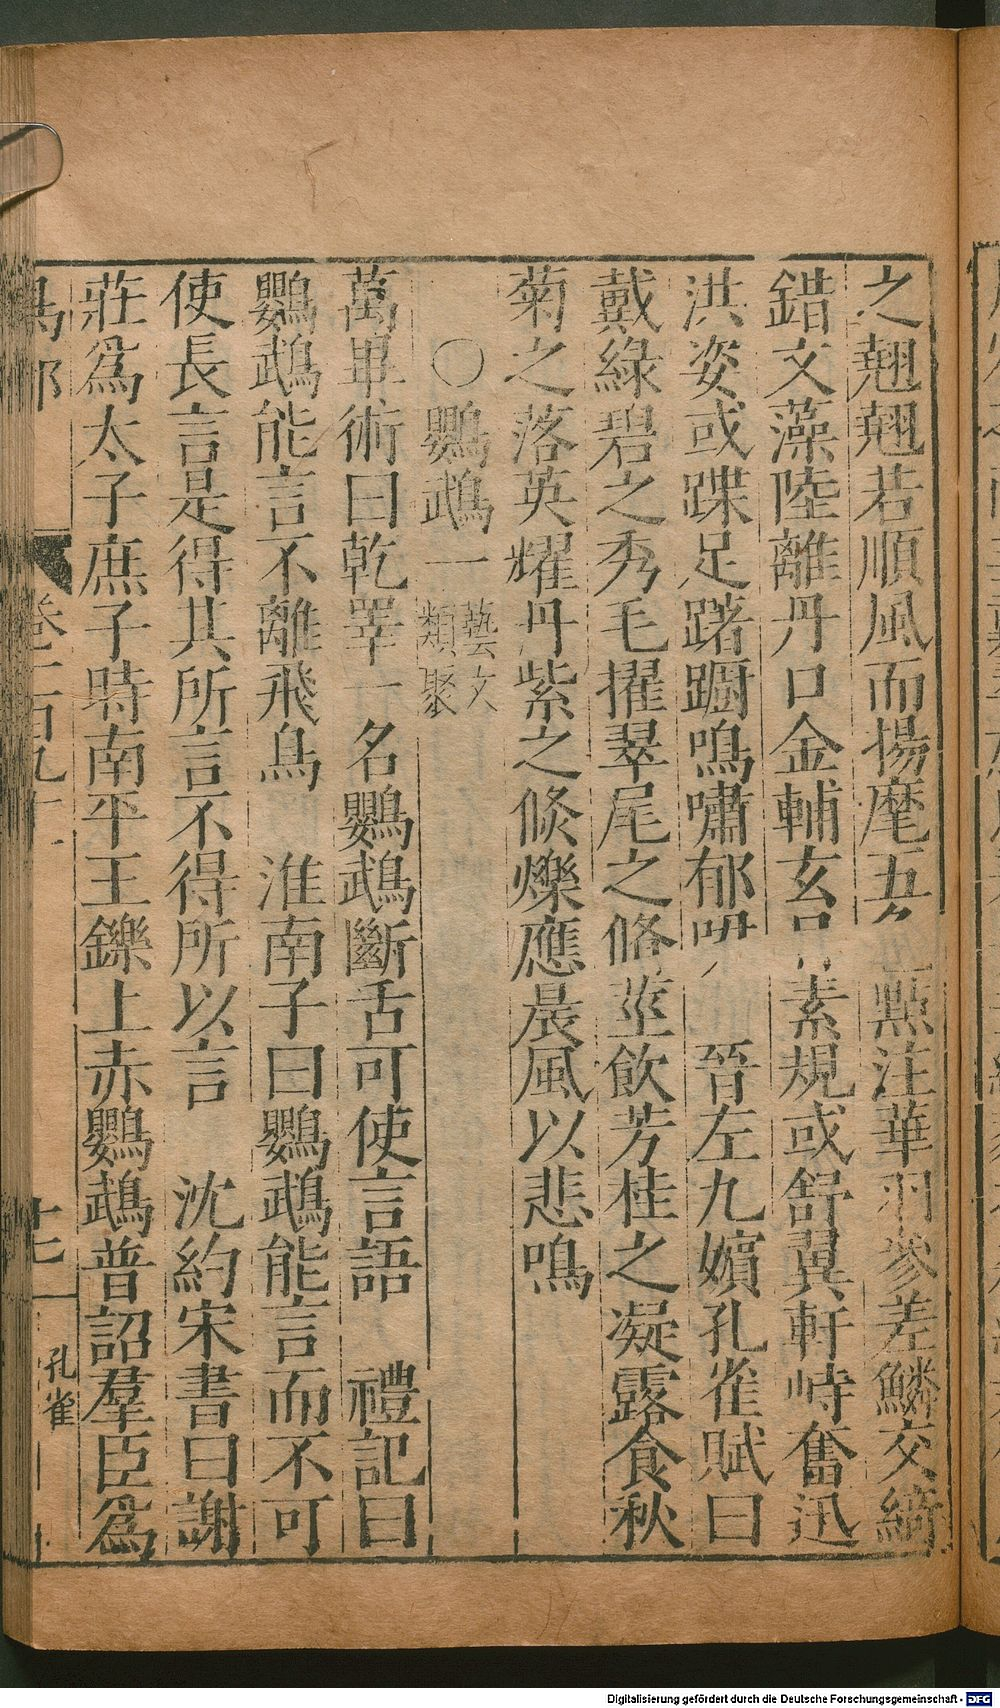 之翹翹若順風而揚麾五點注華羽參差鱗交綺
錯文藻陸離丹口金輔玄素規或舒翼軒峙奮迅
洪姿或蹀足躇躕鳴嘯郁 晉左九嬪孔雀賦曰
戴綠碧之秀毛擢翠尾之脩莖飲芳桂之凝露食秋
菊之落英耀丹紫之倏爍應晨風以悲鳴
○鸚鵡一 藝文類聚
萬畢術曰乾睪一名鸚鵡斷舌可使言語 禮記曰
鸚鵡能言不離飛鳥 淮南子曰鸚鵡能言而不可
使長言是得其所言不得所以言 沈約宋書曰謝
莊爲太子庶子時南平王鑠上赤鸚鵡普詔羣臣爲
鳥部 卷二百九十 十七 孔雀
Digitalisierung gefördert durch die Deutsche Forschungsgemeinschaft - DFG